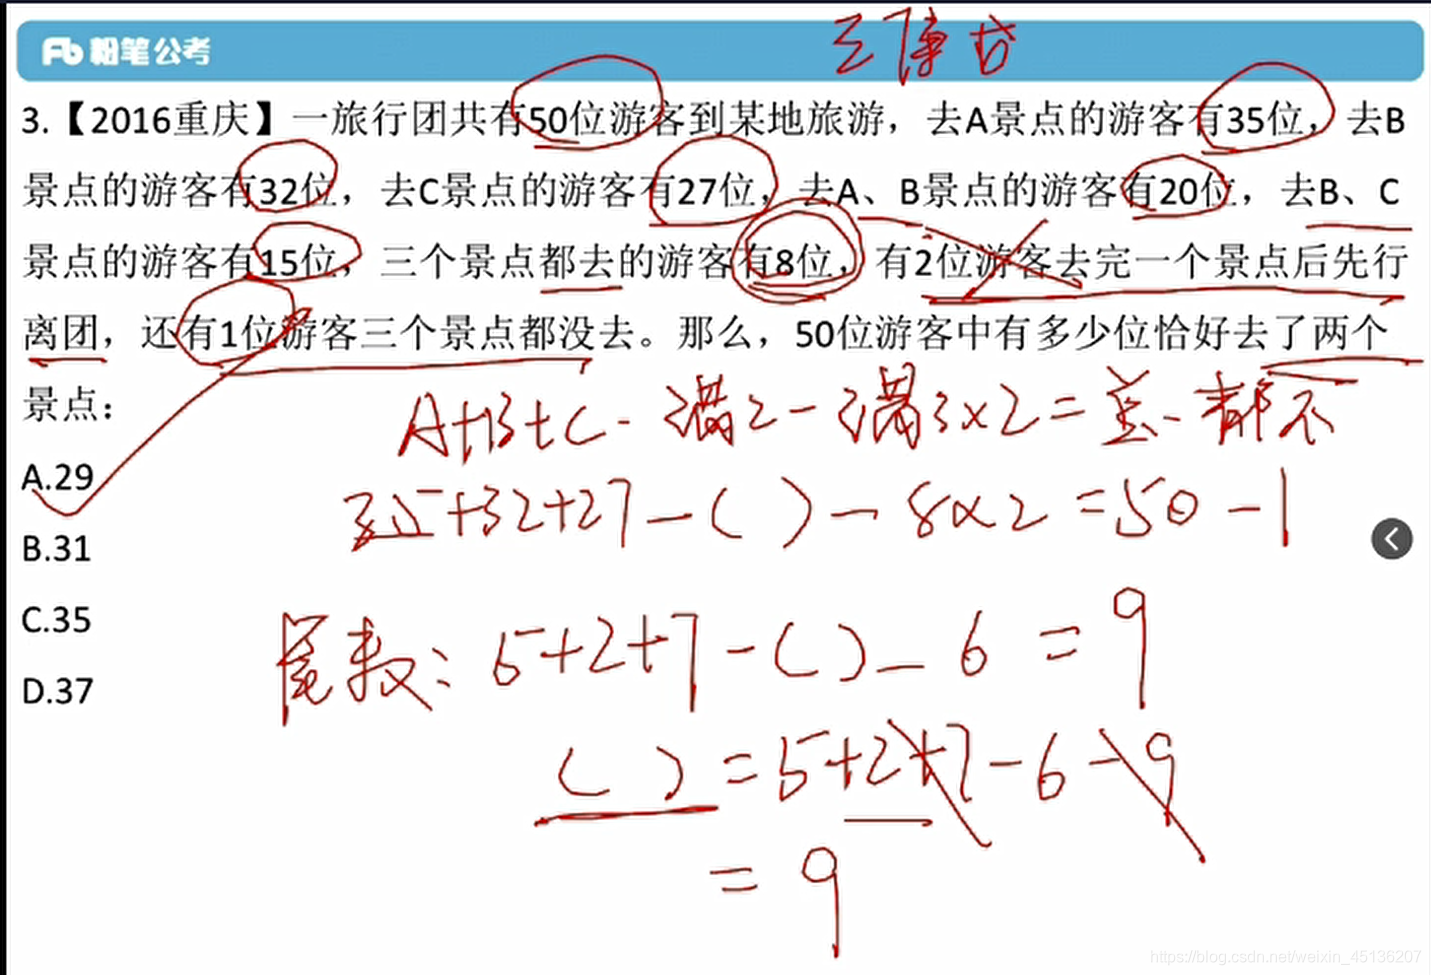 三集合
粉笔公考
3.【2016重庆】一旅行团共有50位游客到某地旅游，去A景点的游客有35位，去B
景点的游客有32位，去C景点的游客有27位，去A、B景点的游客有20位，去B、C
景点的游客有15位，三个景点都去的游客有8位，有2位游客去完一个景点后先行
离团，还有1位游客三个景点都没去。那么，50位游客中有多少位恰好去了两个
景点：
A+B+C-满2-满3×2=总-都不
A.29
35+32+27-( )-8×2=50-1
B.31
C.35
尾数：5+2+7-( )-6=9
D.37
( )=5+2+7-6-9
=9
https://blog.csdn.net/weixin_45136207